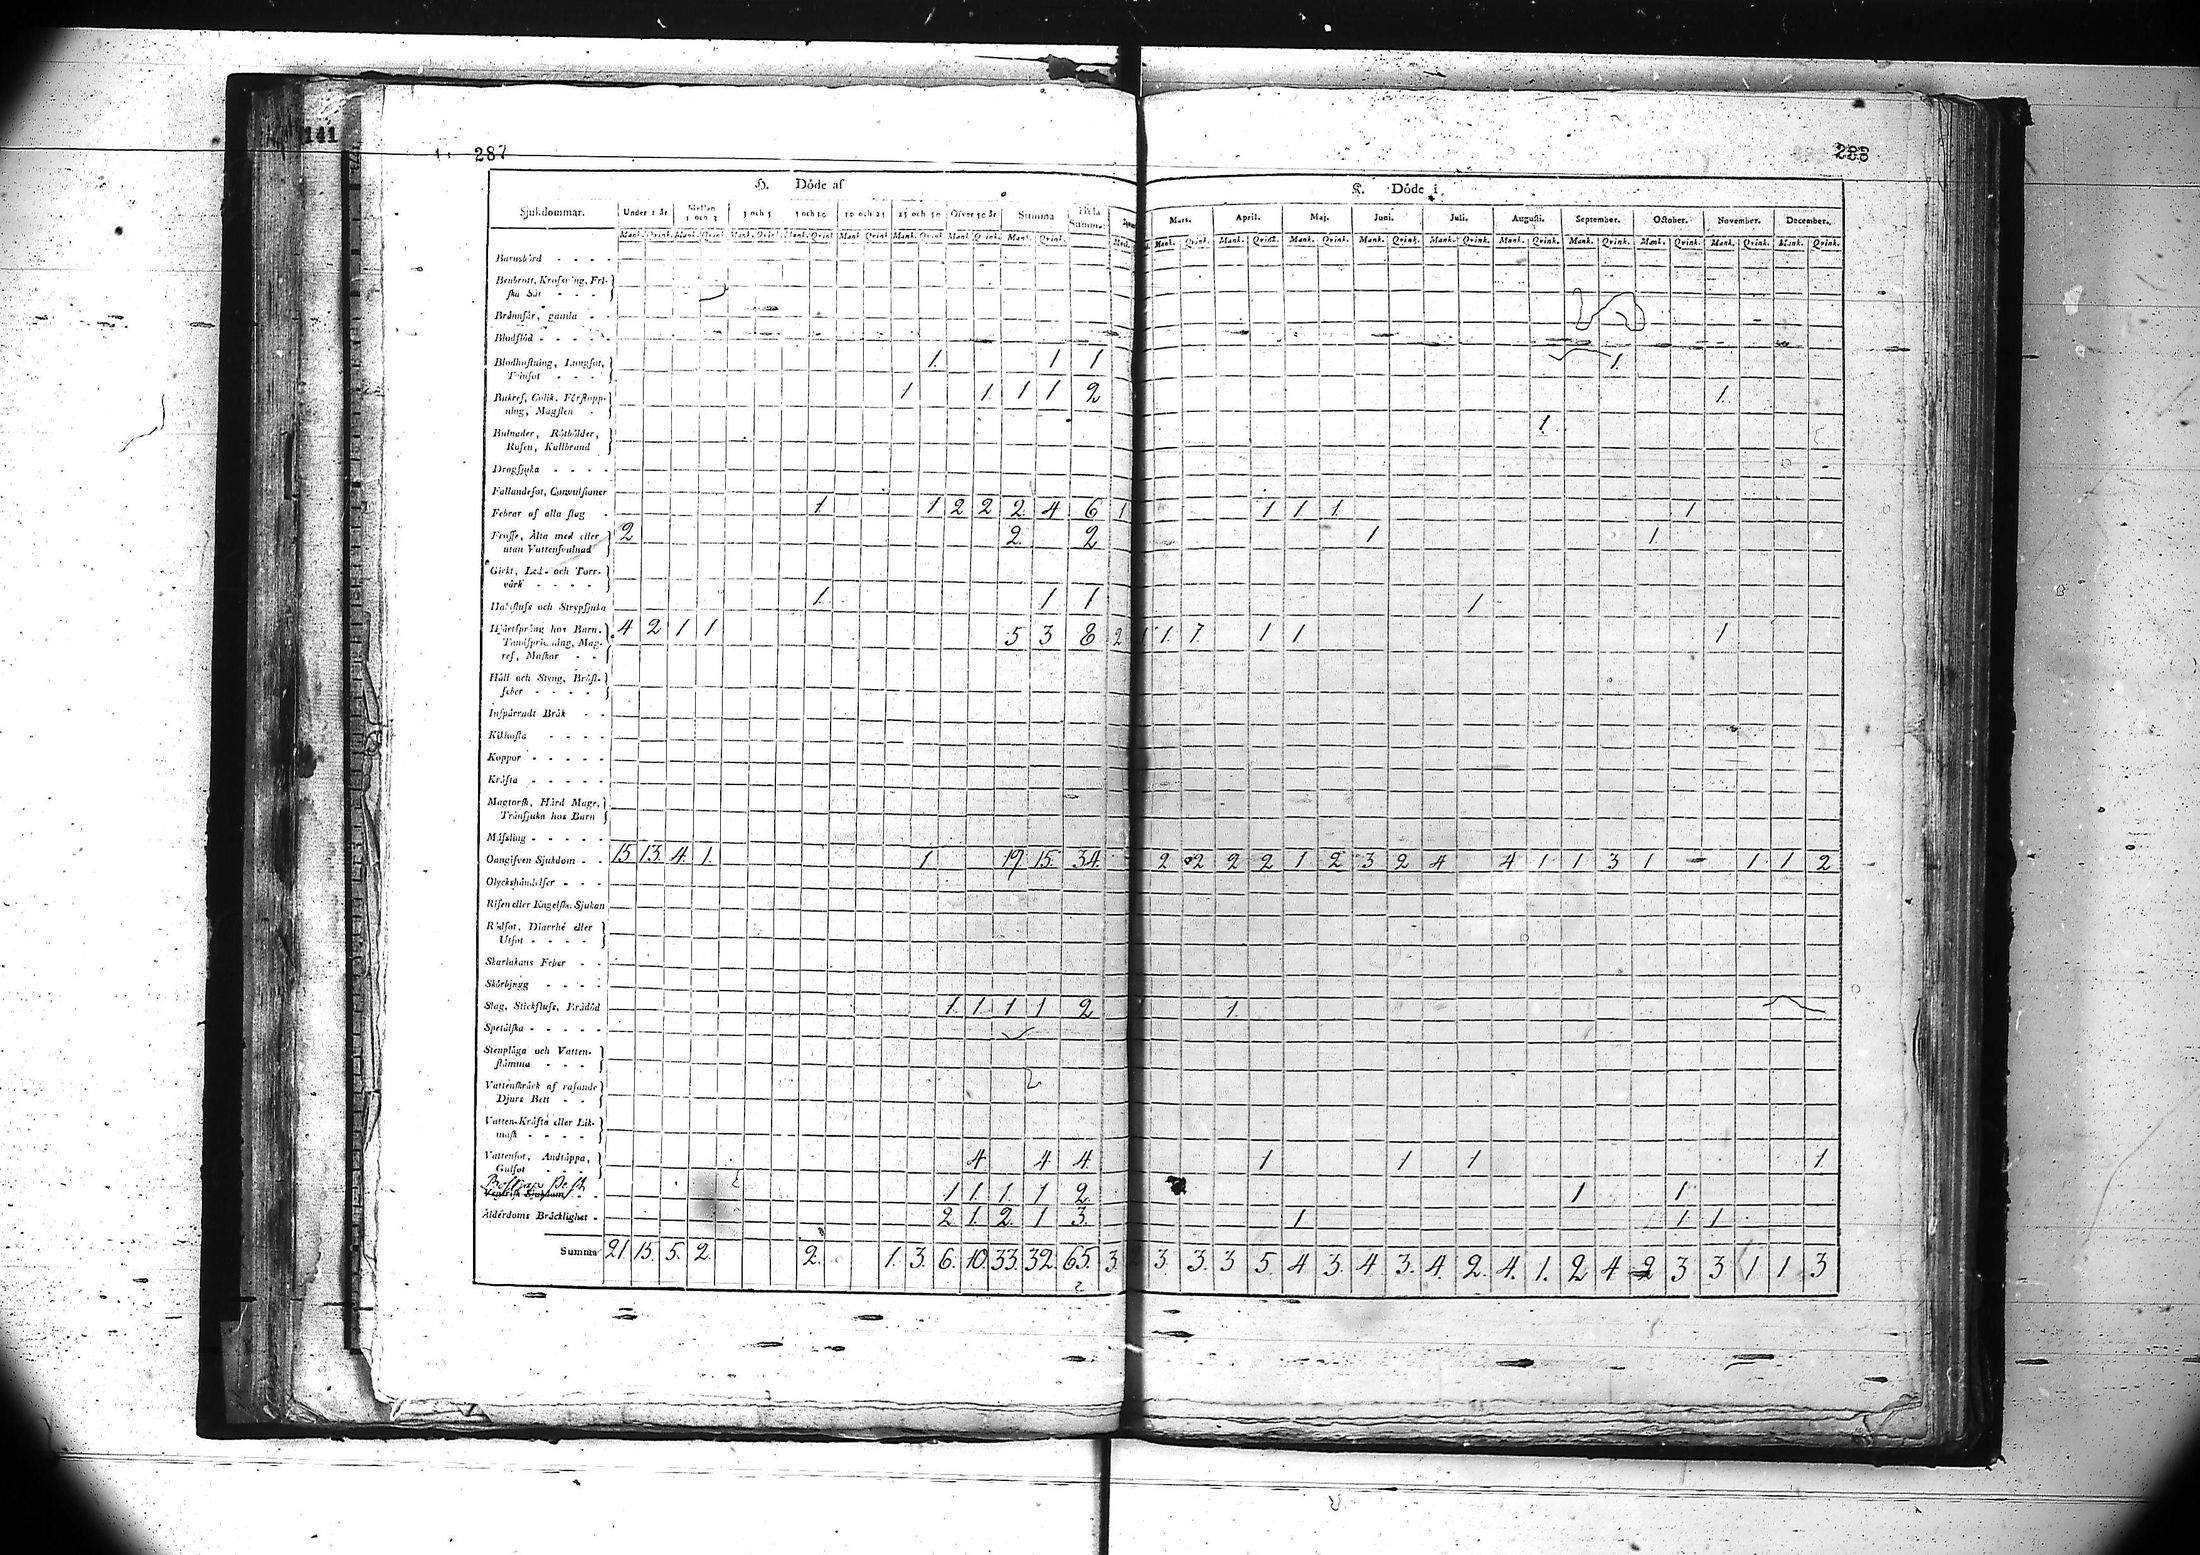 141
287
288
H. Döde af
K. Döde i
Sjukdommar. Under 1 år Mellan 1 och 3 3 och 5 5 och 10 10 och 25 25 och 50 Öfver 50 år Summa Hela Summa Mars. April. Maj. Juni. Juli. Augusti. September. October. November. December.
Mank. Qvink. Mank. Qvink. Mank. Qvink. Mank. Qvink. Mank. Qvink. Mank. Qvink. Mank. Qvink. Mank. Qvink. Mank. Mank. Qvink. Mank. Qvink. Mank. Qvink. Mank. Qvink. Mank. Qvink. Mank. Qvink. Mank. Qvink. Mank. Qvink. Mank. Qvink. Mank. Qvink.
Barnsbörd
Benbrott, Krossning, Fel-
ska Sår
Brånnsår, gamla
Blodflöd
Blodhostning, Lungsot, 1. 1 1 1.
Tvinsot
Bukref, Colik, Förstopp- 1 1. 1 1 2 1.
ning, Magplen
Bulnader, Rötbölder, 1.
Rosen, Kallbrand
Dragsjuka
Fallandesot, Convulsioner
Febrar af alla slag 1. 1 2 2 2. 4 6 1 1 1 1. 1
Frosse, Älta med eller 2 2. 2 1 1.
utan Vattensvulnad
Gickt, Led- och Torr-
värk
Halsfluss och Strypsjuka 1. 1 1 1
Hjärtsprång hos Barn, 4 2 1 1 5 3 8 2 1 1. 1. 1 1 1
Tandsprickning, Mag-
ref, Maskar
Håll och Styng, Bröst-
feber
Inspärradt Bråk
Kikhosta
Koppor
Kräfta
Magtorsk, Hård Mage,
Trånsjuka hos Barn
Mässling
Oangifven Sjukdom 15 13. 4. 1. 1 19. 15. 34. 2 2 2 2 1 2 3 2 4 4 1 1 3 1 1 1 2
Olyckshändelser
Risen eller Engelska Sjukan
Rödsot, Diarrhé eller
Utsot
Skarlakans Feber
Skörbjugg
Slag, Stickfluss, Brådöd 1. 1. 1 1 2 1.
Spetälska
Stenplåga och Vatten-
stämma
Vattenskräck af rasande
Djurs Bett
Vatten-Kräfta eller Lik-
mask
Vattusot, Andtäppa, 4 4 4. 1 1 1 1
Gulsot
Venerisk Sjukdom 1 1. 1. 1 2. 1 1
Ålderdoms Bräcklighet 2 1. 2. 1 3. 1 1 1
Summa 21. 15. 5. 2. 2. 1. 3. 6. 10. 33. 32. 65. 3. 2 3. 3. 3 5. 4 3. 4 3. 4. 2. 4. 1. 2 4 2 3 3 1 1 3